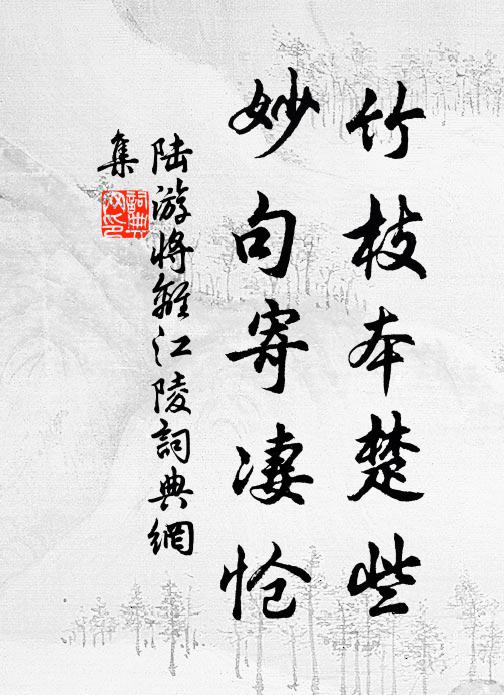 竹枝本楚些
妙句寄凄怆
陆游将離江陵詞典網
集
詞典
网印